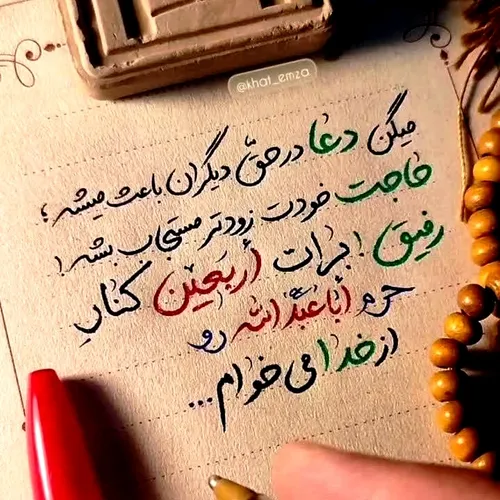 @khat_emza
میگن دعا در حقّ دیگران باعث میشه؛
حاجت خودت زودتر مستجاب بشه!
رفیق! برات أربعین کنارِ
حرم أباعبدالله رو
از خدا می خوام...